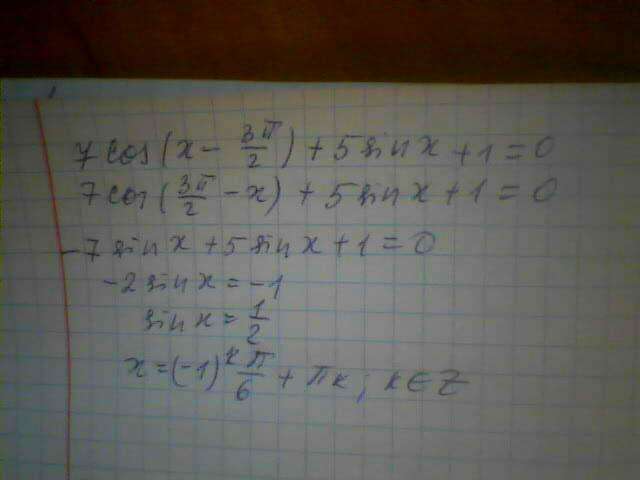 7 cos(x - 3π/2) + 5 sin x + 1 = 0
7 cos(3π/2 - x) + 5 sin x + 1 = 0
-7 sin x + 5 sin x + 1 = 0
-2 sin x = -1
sin x = 1/2
x = (-1)^k π/6 + πk; k ∈ Z